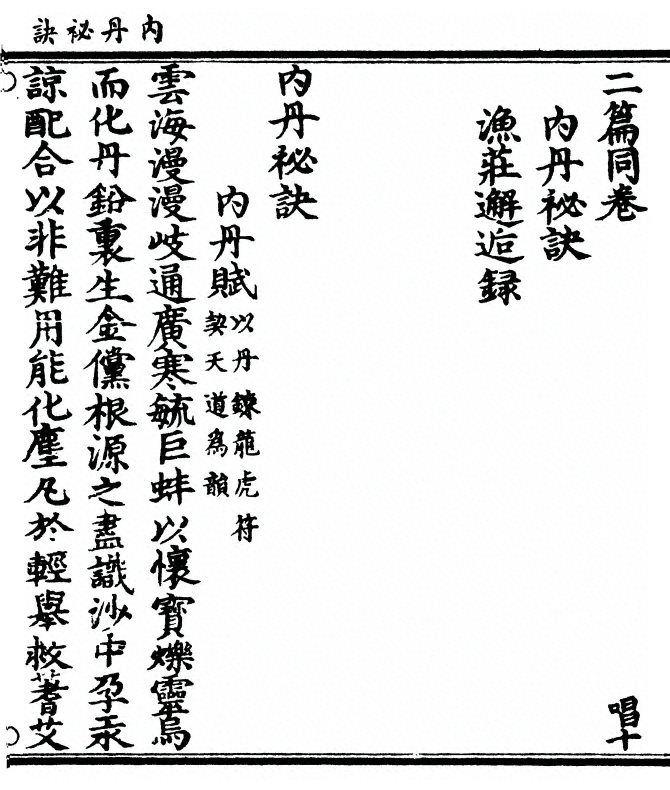 內丹祕訣
二篇同卷 唱十
內丹祕訣
漁莊邂逅録
內丹祕訣
內丹賦 以丹鍊龍虎符
契天道爲韻
雲海漫漫岐通廣寒毓巨蚌以懷寶爍靈烏
而化丹鉛裏生金儻根源之盡識沙中孕汞
諒配合以非難用能化塵凡於輕舉救蓍艾